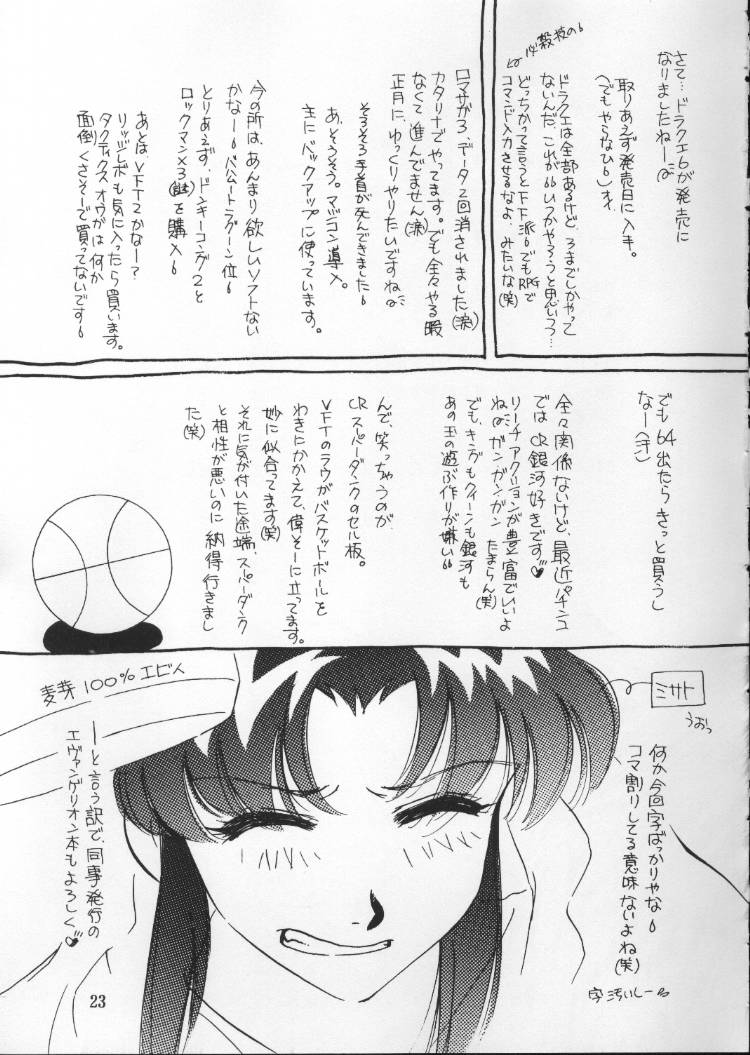 さて…ドラクエ6が発売に
なりましたねー
取りあえず発売日に入手。
(でもやらなひ6)オイ
ドラクエは全部あるけど、3までしかやって
ないんだ、これが66いつかやろうと思いつつ…
どっちかって言うとFF派6でもRPGで
必殺技の6
コマンド入力させるなよ、みたいな(笑)
ロマサガ3、データ2回消されました(涙)
カタリナでやってます。でも全々やる暇
なくて進んでません(涙)
正月に、ゆっくりやりたいですね
そろそろ手首が死んできました6
あ、そうそう。マジコン導入。
主にバックアップに使っています。
今の所は、あんまり欲しいソフトない
かなー6バハムートラグーン位6
とりあえず、ドンキーコング2と
ロックマンX3(謎)を購入6
あとはVFT2かなー?
リッジレボも気に入ったら買います。
タクティクスオウガは何か
面倒くさそーで買ってないです6
でも64出たらきっと買うし
なー(汗)
全々関係ないけど、最近パチンコ
ではCR銀河好きです♡
リーチアクションが豊富でいいよ
ねガンガンガン たまらん(笑)
でも、キングもクイーンも銀河も
あの玉の遊ぶ作りが嫌い66
んで、笑っちゃうのが、
CRスーパーダンクのセル板。
VFTのラウがバスケットボールを
わきにかかえて、偉そーに立ってます。
妙に似合ってます(笑)
それに気が付いた途端、スーパーダンク
と相性が悪いのに納得行きまし
た(笑)
ミサト
うおっ
何か今回字ばっかりやな6
コマ割りしてる意味ないよね(笑)
字汚いしーる
麦芽100%エビス
――と言う訳で、同事発行の
エヴァンゲリオン本もよろしく♡
23